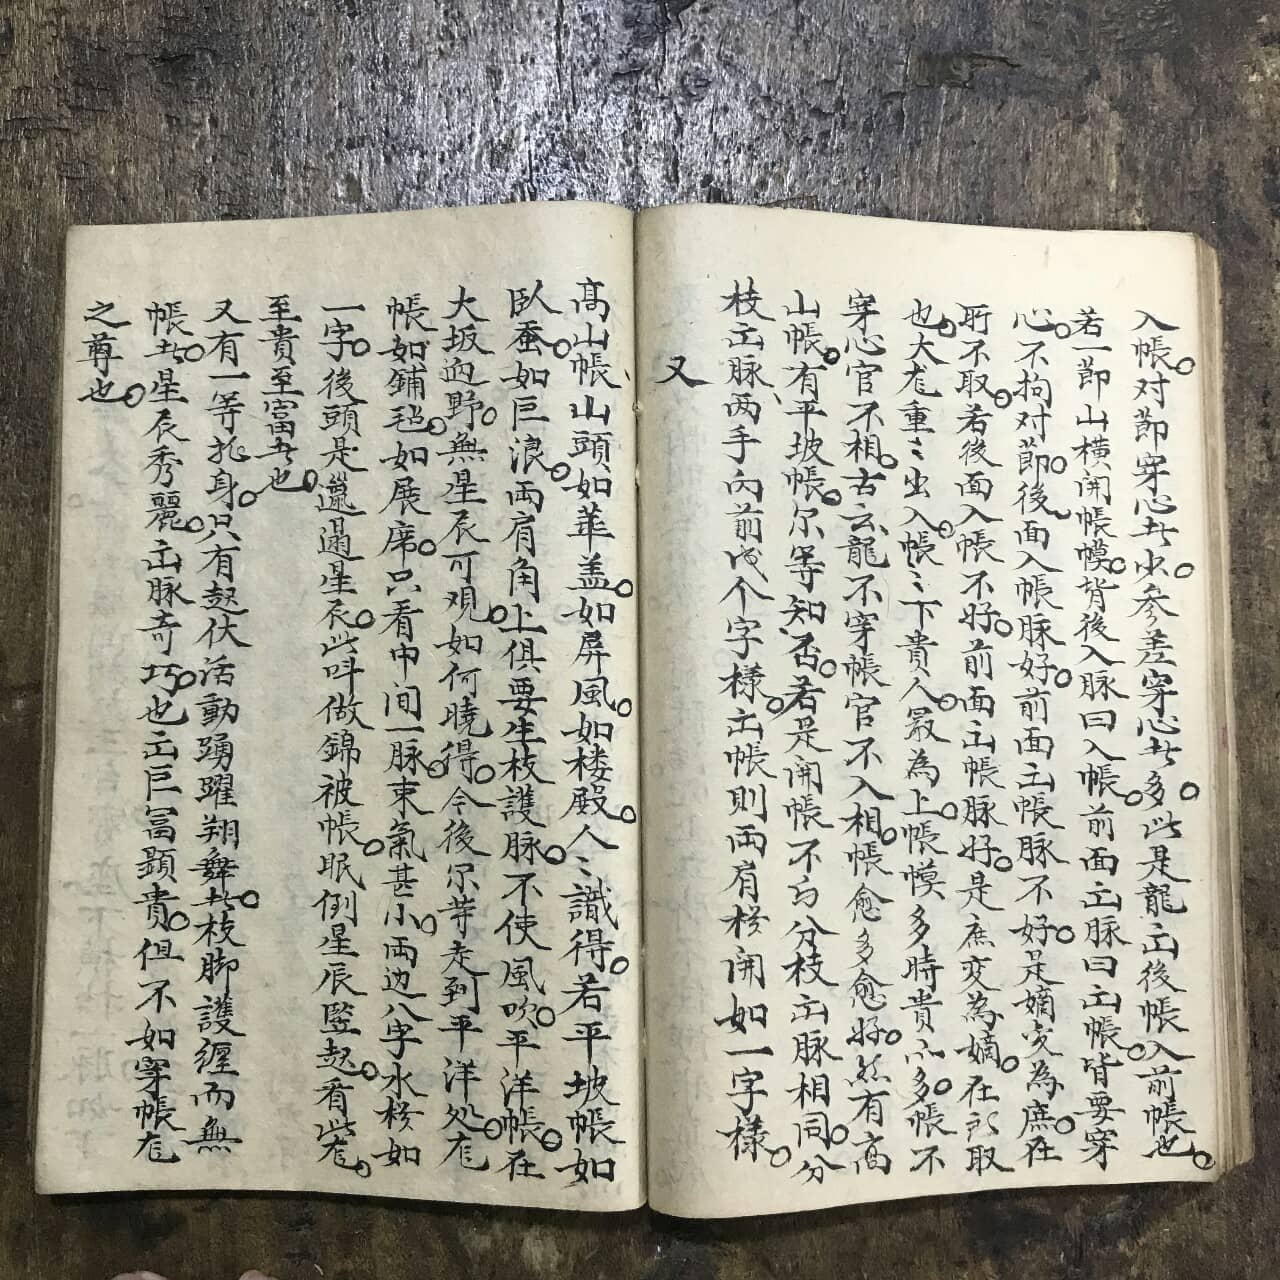 入帳对節穿心者少参差穿心者多此是龍出後帳入前帳也
若一節山横開帳幙背後入脉曰入帳前面出脉曰出帳皆要穿
心不拘对節後面入帳脉好前面出帳脉不好是嫡变為庶在
所不取若後面入帳不好前面出帳脉好是庶变為嫡在所取
也大龙重〻出入帳〻下貴人最為上帳幙多時貴亦多帳不
穿心官不相古云龍不穿帳官不入相帳愈多愈好然有高
山帳有平坡帳尔等知否若是開帳不与分枝出脉相同分
枝出脉两手向前成个字樣出帳則両肩横開如一字樣
又
髙山帳山頭如華盖如屏風如楼殿人〻識得若平坡帳如
臥蚕如巨浪両肩角上俱要生枝護脉不使風吹平洋帳在
大坂迥野無星辰可观如何曉得今後尔等走到平洋処龙
帳如鋪毡如展席只看中间一脉束氣甚小両边八字水横如
一字後頭是邋遢星辰此呌做錦被帳眠倒星辰竪起看此龙
至貴至富者也
又有一等挑身只有起伏活動踴躍翔舞者枝脚護纒而無
帳者星辰秀麗出脉奇巧也出巨富顕貴但不如穿帳龙
之尊也